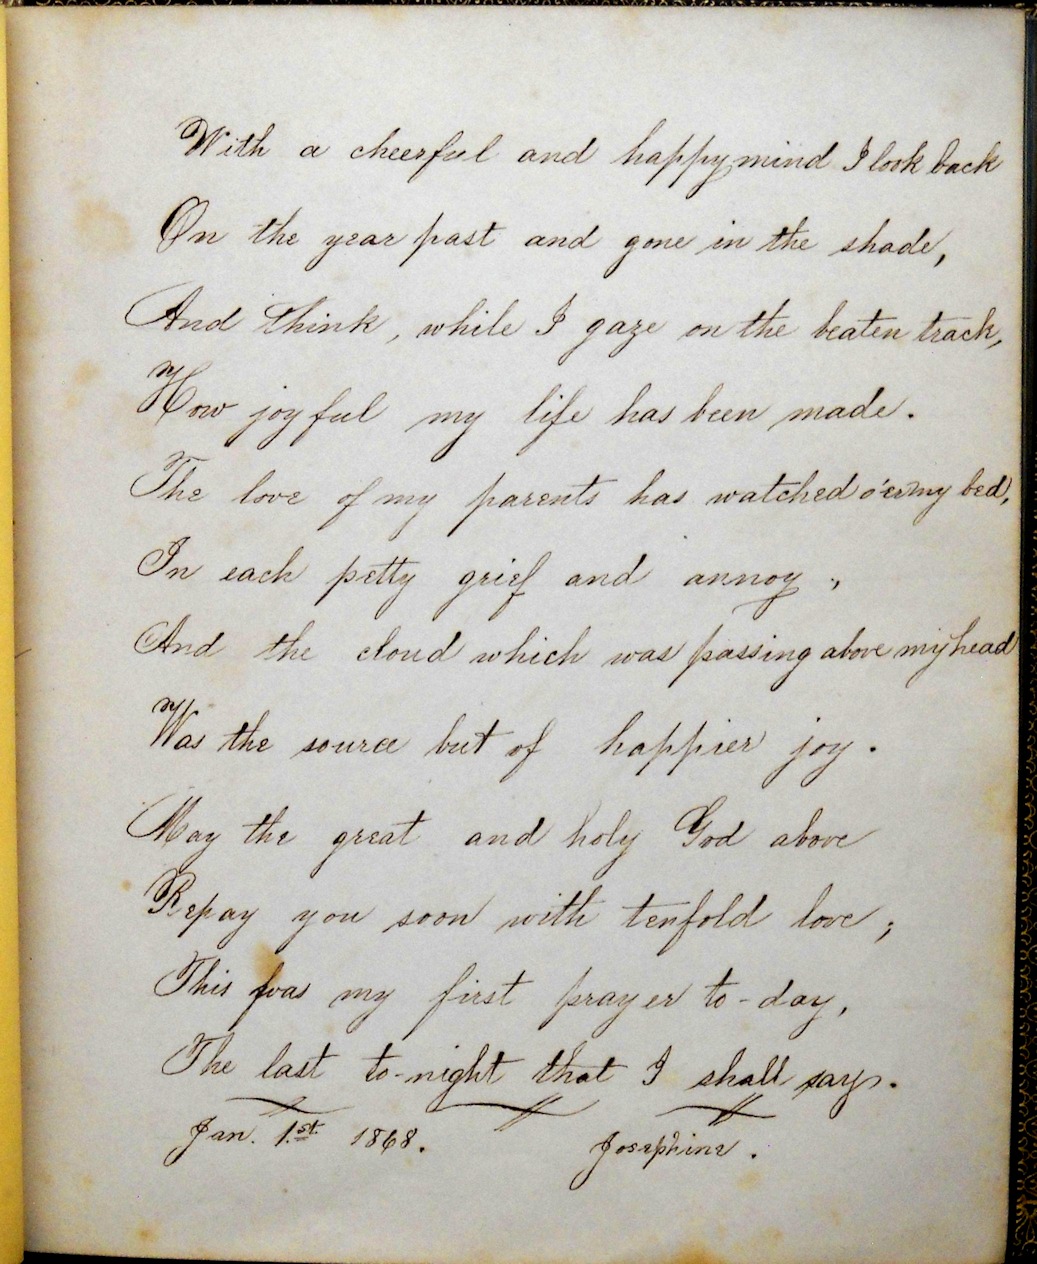 With a cheerful and happy mind I look back
On the year past and gone in the shade,
And think, while I gaze on the beaten track,
How joyful my life has been made.
The love of my parents has watched o'er my bed,
In each petty grief and annoy.,
And the cloud which was passing above my head
Was the source but of happier joy.
May the great and holy God above
Repay you soon with tenfold love;
This was my first prayer to-day,
The last to-night that I shall say.
Jan. 1st 1868. Josephine.